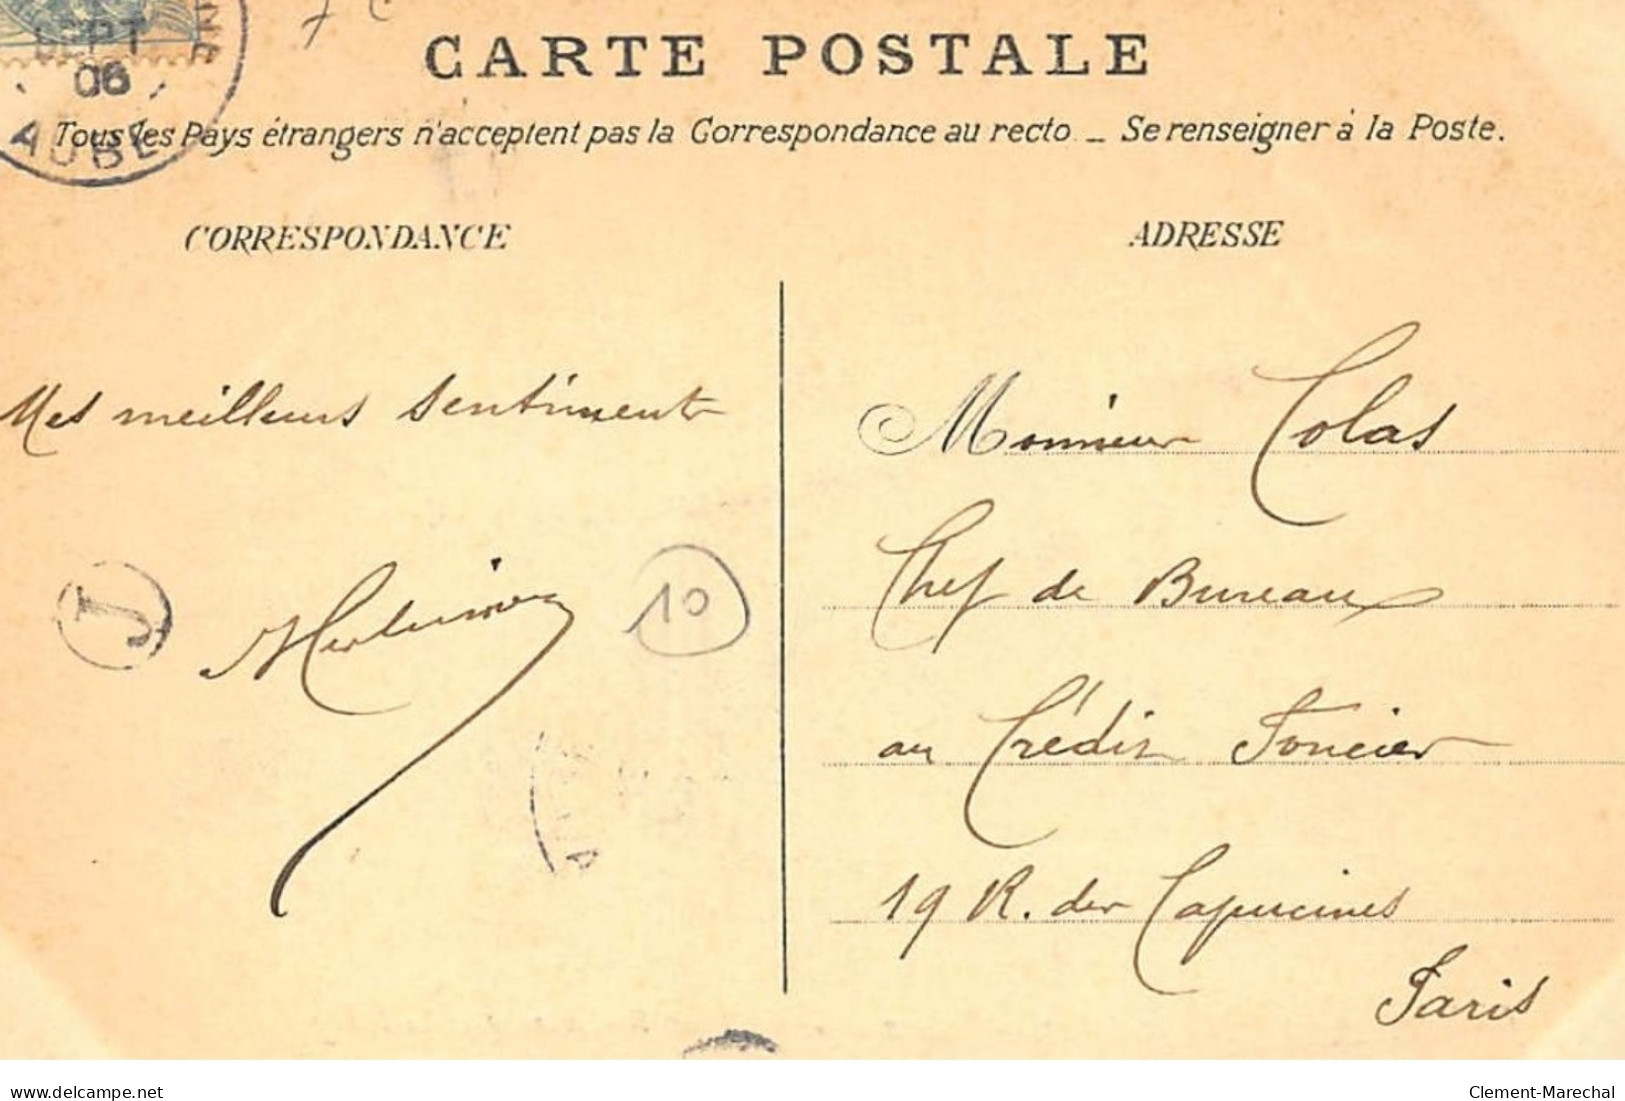 7 C
CARTE POSTALE
SEPT
06
AUBE
Tous les Pays étrangers n'acceptent pas la Correspondance au recto _ Se renseigner à la Poste.
CORRESPONDANCE
ADRESSE
Mes meilleurs sentiments
Monsieur Colas
Chef de Bureau
au Crédit Foncier
19 R. des Capucines
Paris
J
10
delcampe.net
Clement-Marechal